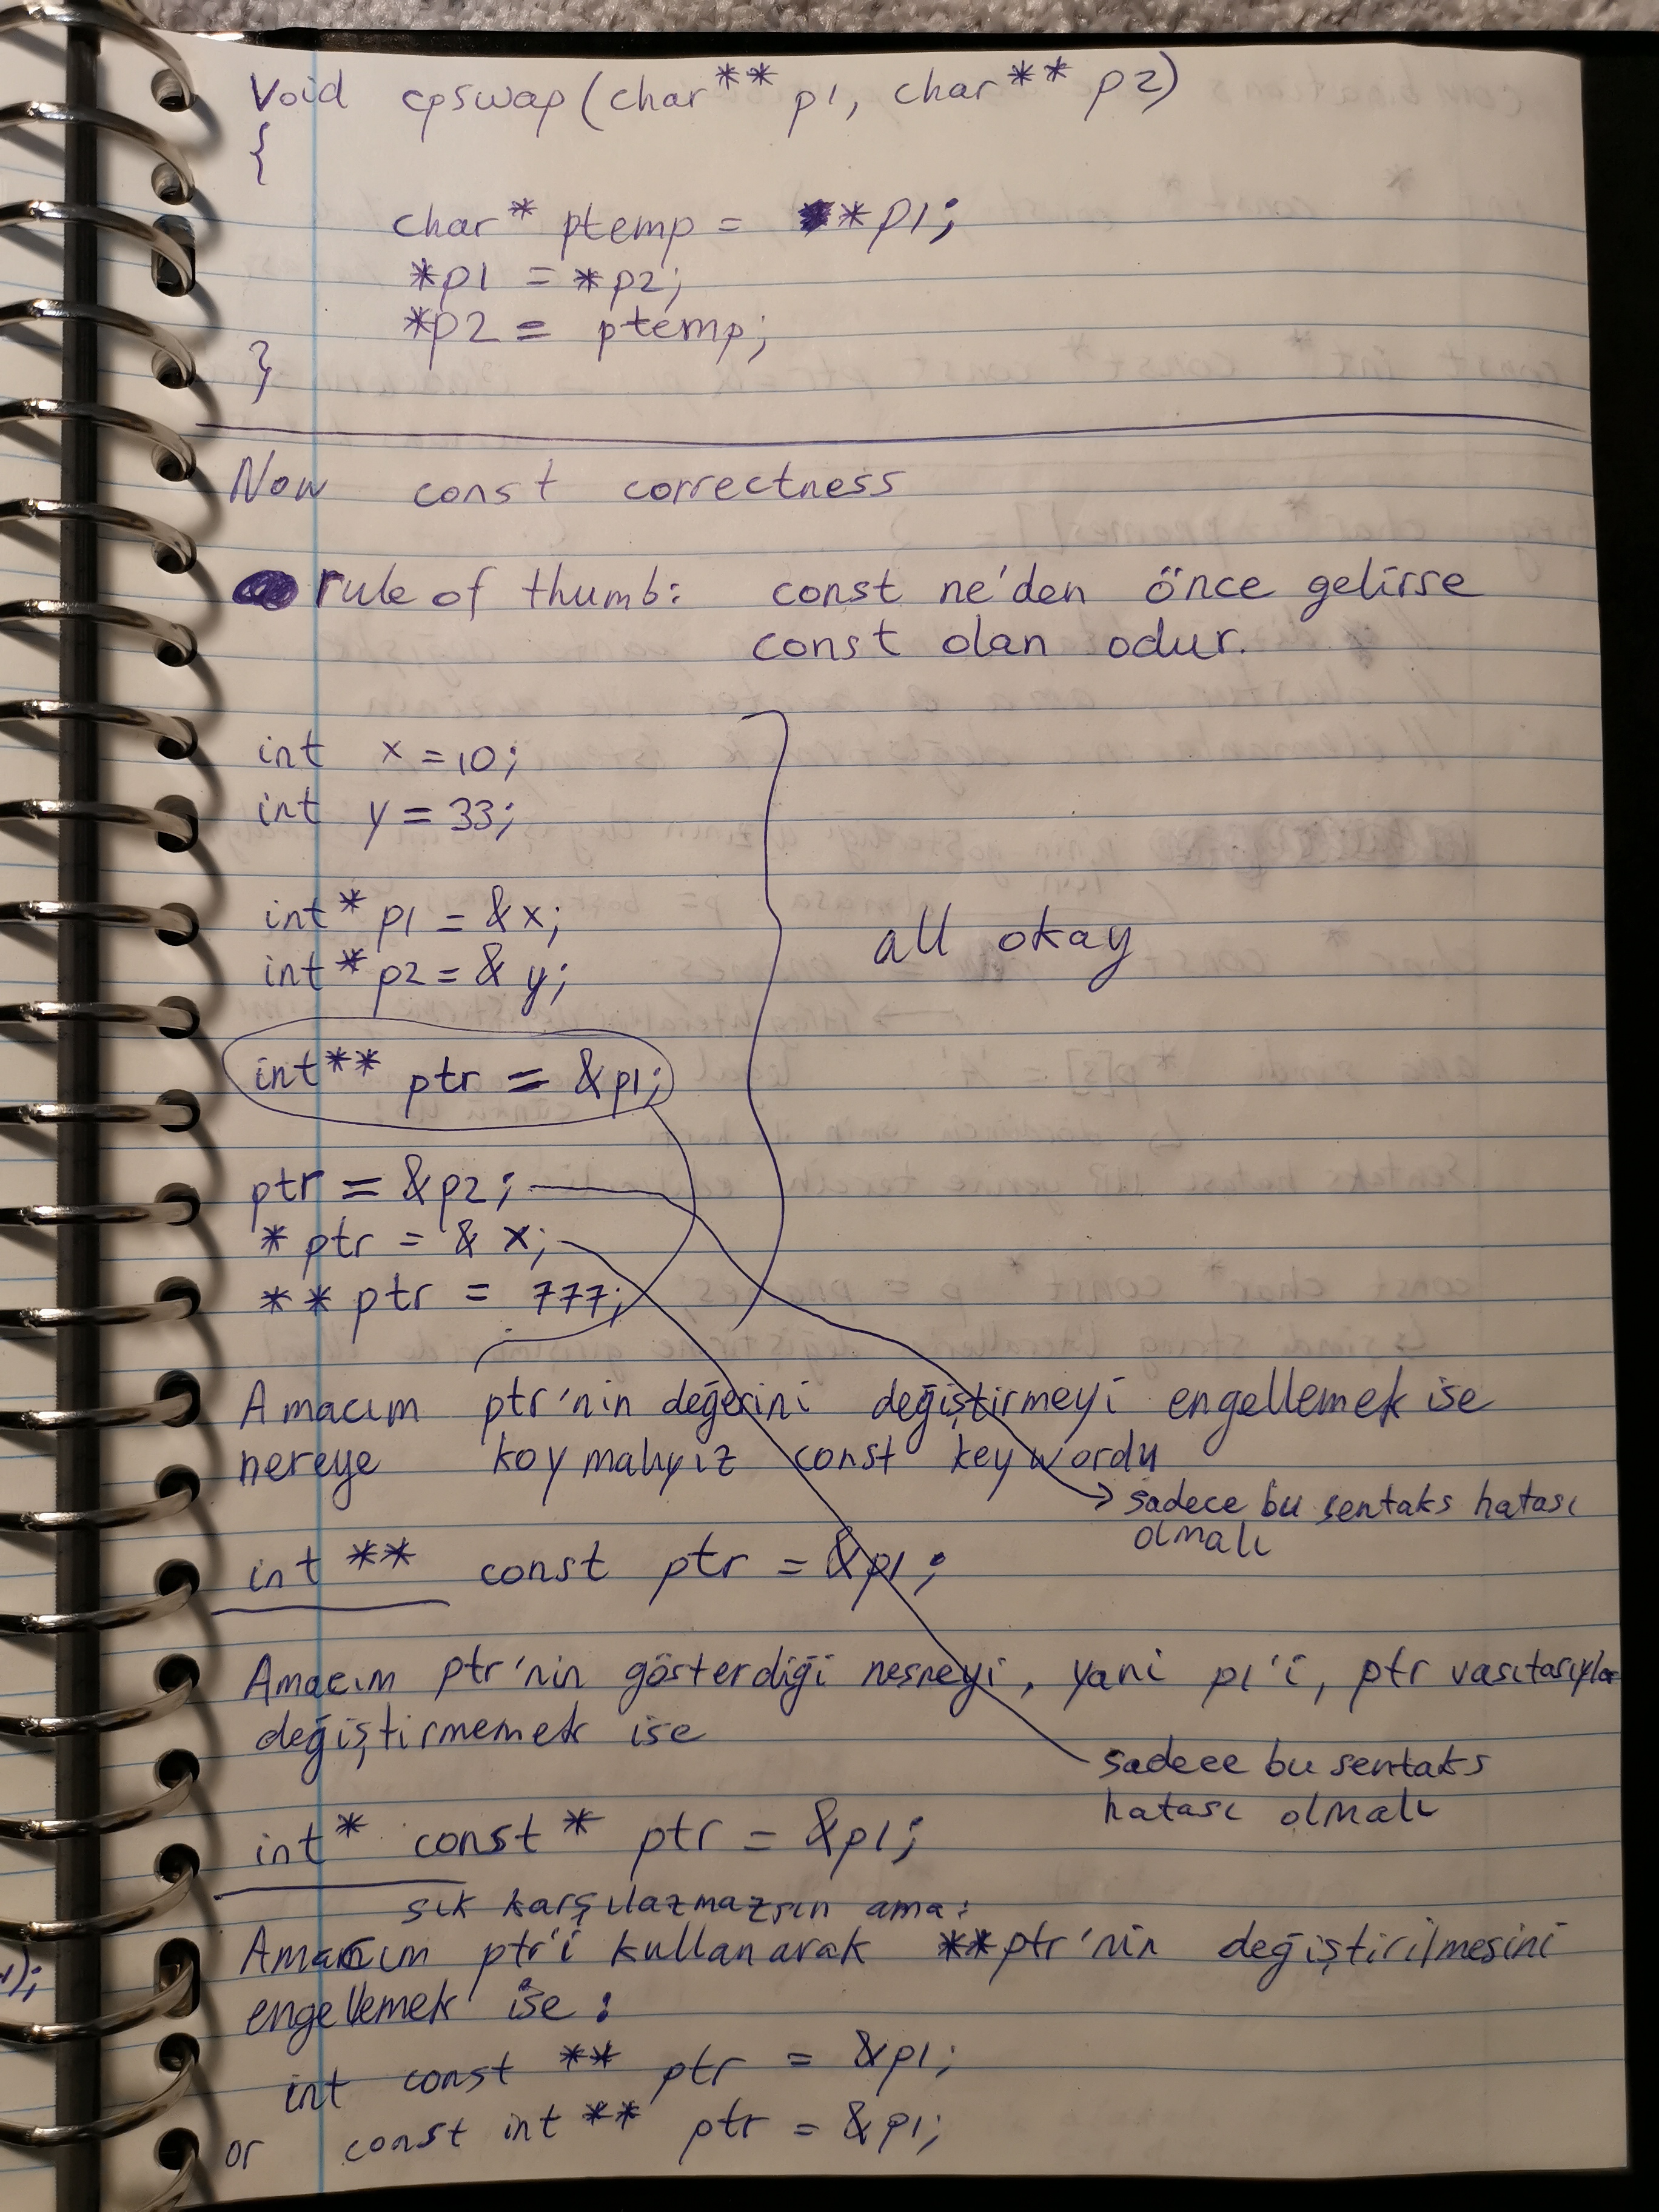 Void cpswap(char** p1, char** p2)
{
char* ptemp = *p1;
*p1 = *p2;
*p2 = ptemp;
}
Now const correctness
rule of thumb: const ne'den önce gelirse
const olan odur.
int x = 10;
int y = 33;
int* p1 = &x;
int* p2 = &y;
all okay
int** ptr = &p1;
ptr = &p2;
*ptr = &x;
**ptr = 777;
Amacım ptr'nin değerini değiştirmeyi engellemek ise
nereye koymalıyız const keywordu
sadece bu sentaks hatası
olmalı
int ** const ptr = &p1;
Amacım ptr'nin gösterdiği nesneyi, yani p1'i, ptr vasıtasıyla
değiştirmemek ise
sadece bu sentaks
hatası olmalı
int* const* ptr = &p1;
sık karşılazmazsın ama:
Amacım ptr'i kullanarak **ptr'nin değiştirilmesini
engellemek ise:
int const ** ptr = &p1;
or const int ** ptr = &p1;
);